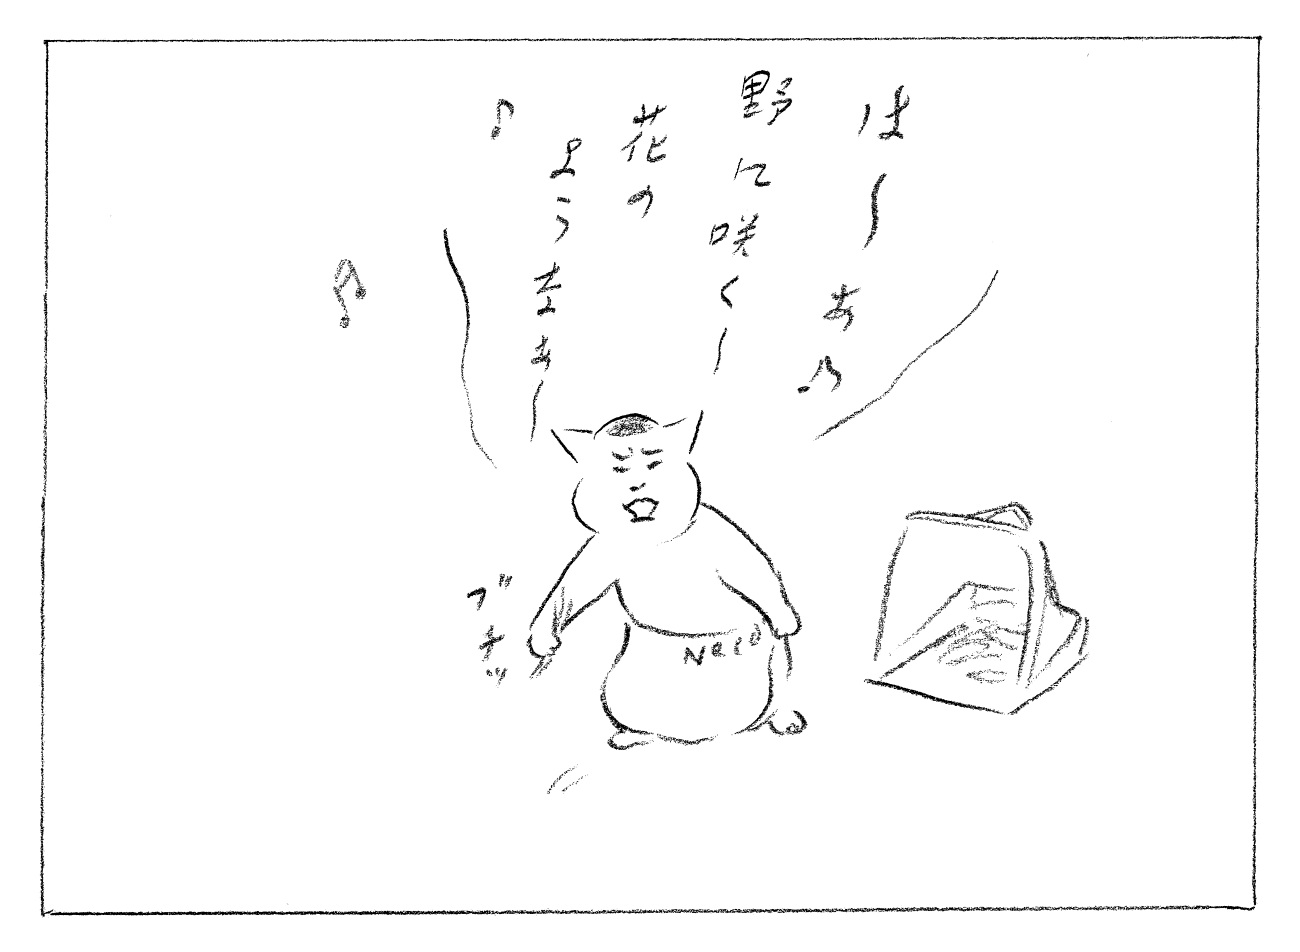 は〜あ♪
野に咲く〜
花の
ようなぁ〜♪
ブチッ